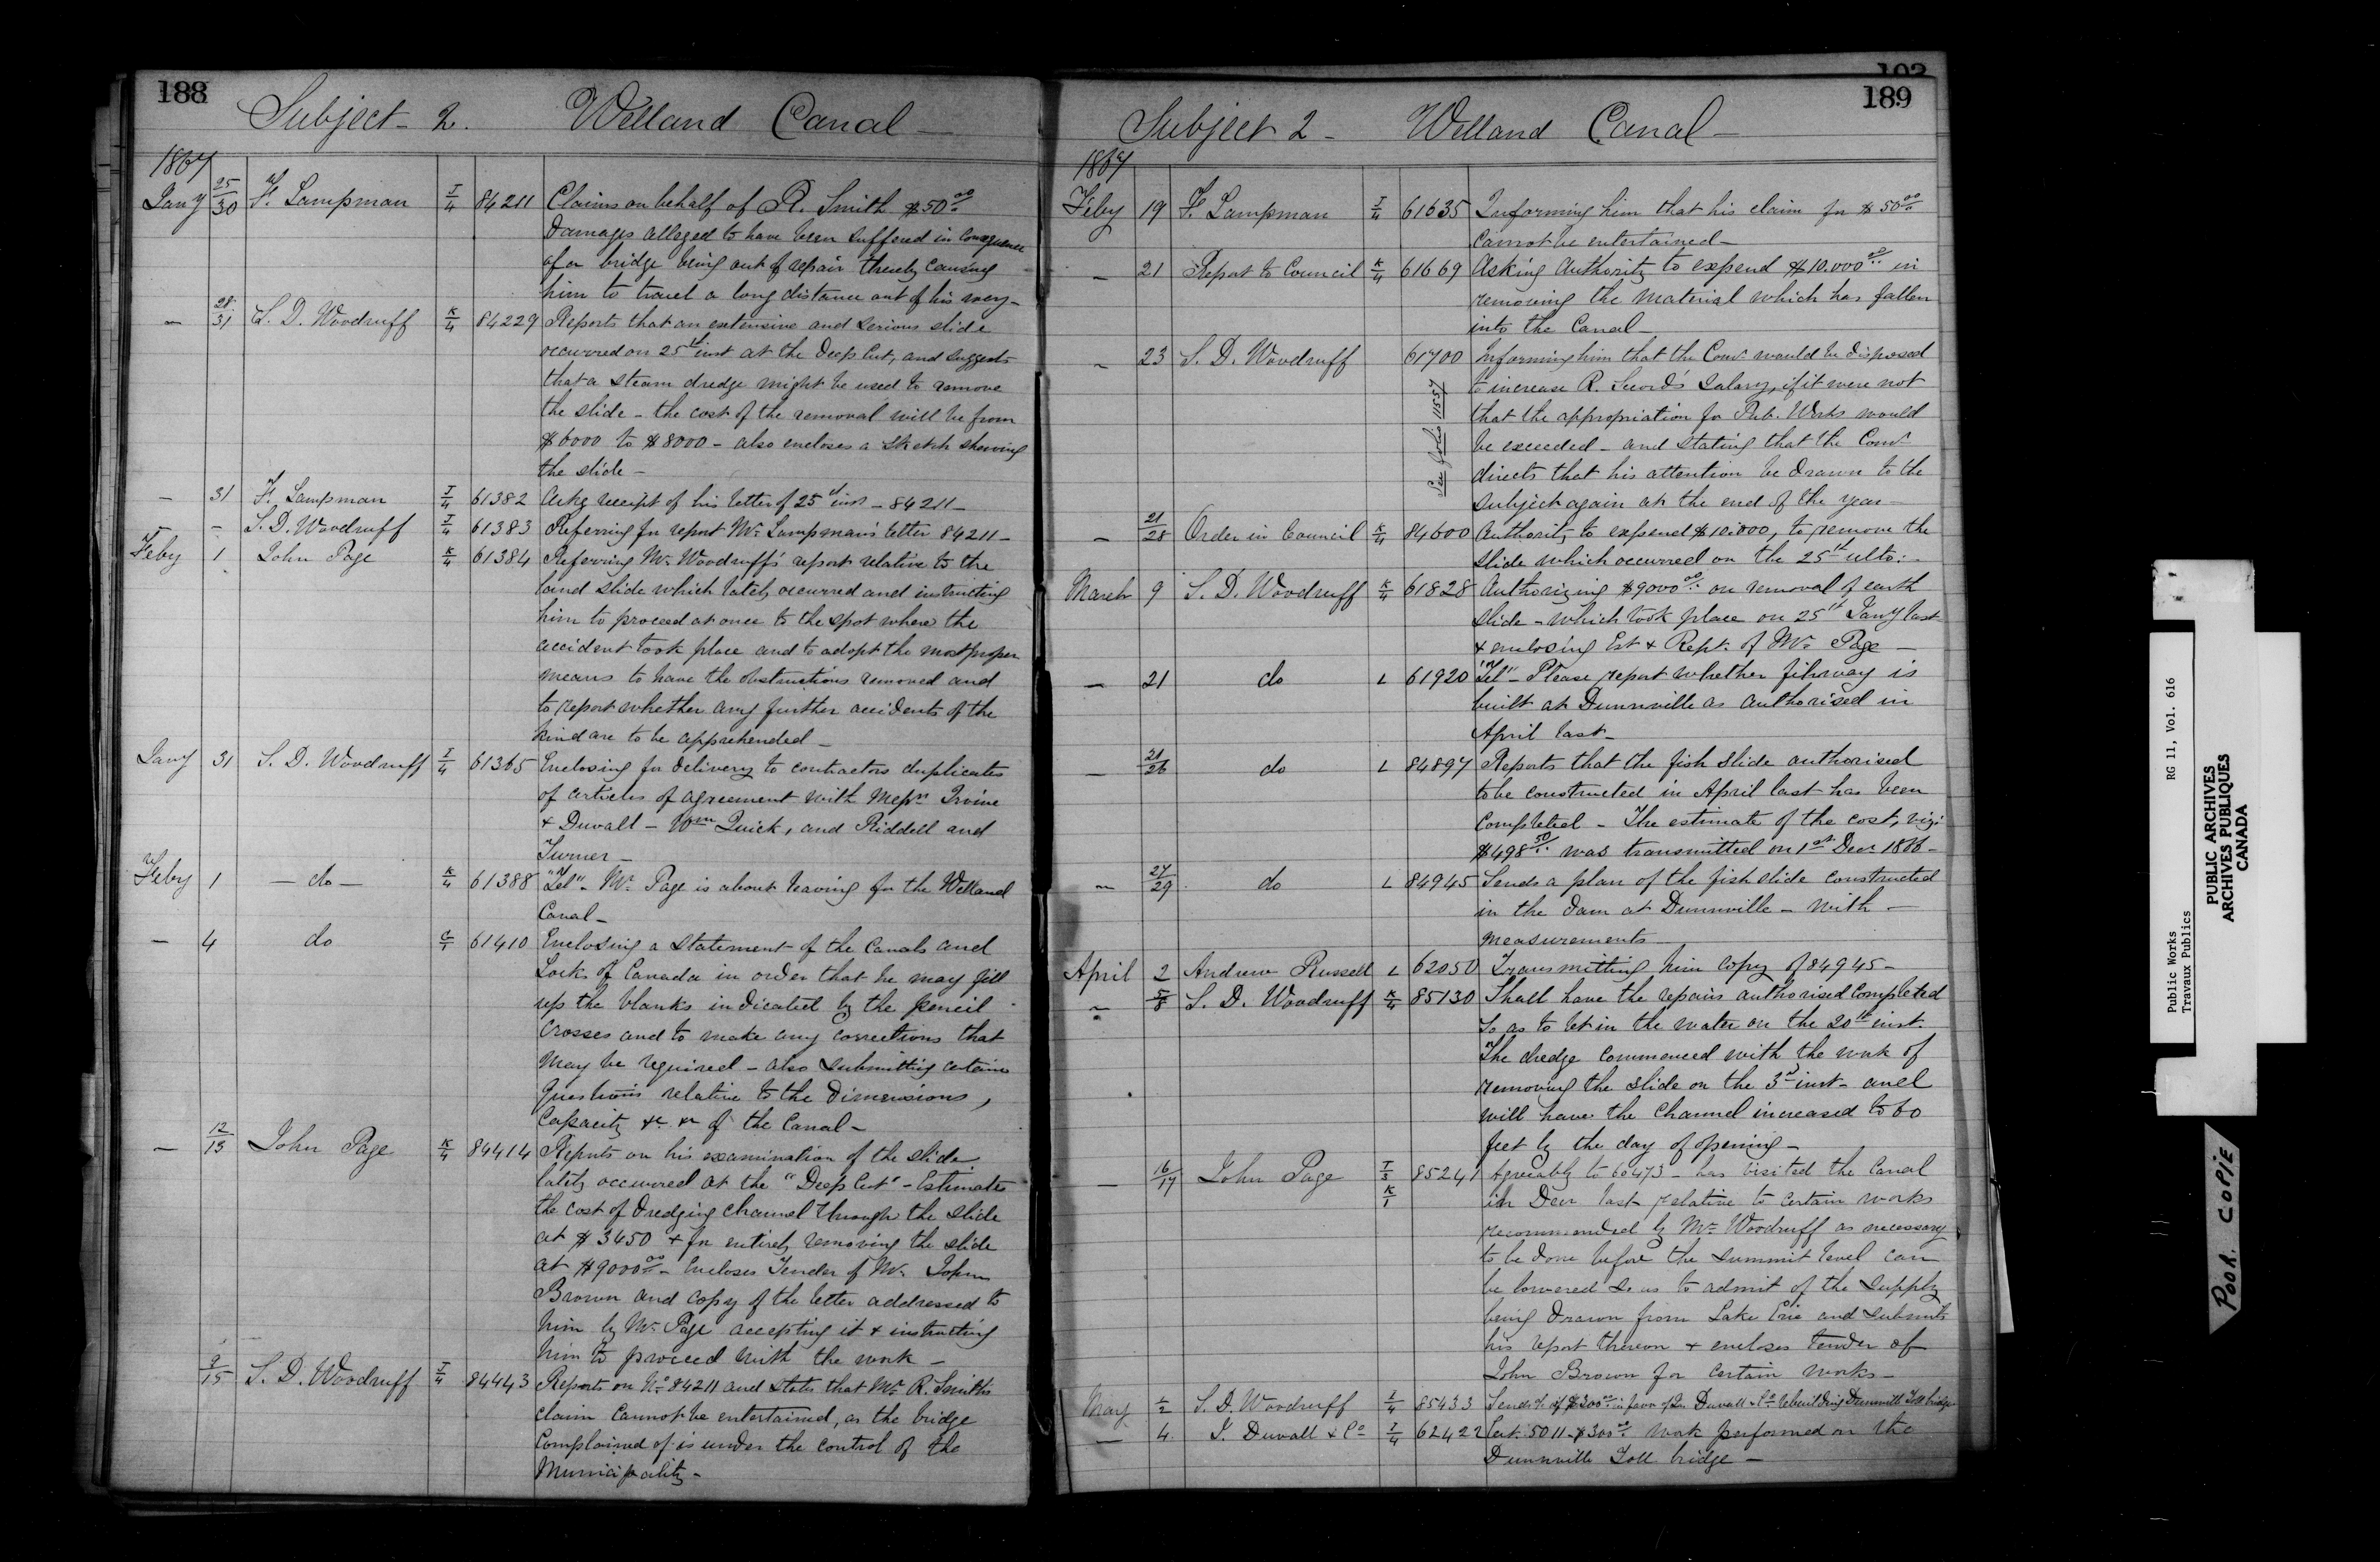 188
Subject - 2. Welland Canal -
1867
Jany 25/30 F. Lampman I/4 84211 Claims on behalf of R. Smith $50 00/..
Damages alleged to have been suffered in consequence
of a bridge being out of repair thereby causing
him to travel a long distance out of his way -
- 28/31 S. D. Woodruff K/4 84229 Reports that an extensive and serious slide
occurred on 25th inst at the Deep Cut, and suggests
that a steam dredge might be used to remove
the slide - the cost of the removal will be from
$6000 to $8000 - also encloses a sketch showing
the slide -
- 31 F. Lampman I/4 61382 Ackg receipt of his letter of 25th inst - 84211 -
- - S. D. Woodruff I/4 61383 Referring for report Mr. Lampman's letter 84211 -
Feby 1 John Page K/4 61384 Referring Mr. Woodruff's report relative to the
land slide which lately occurred and instructing
him to proceed at once to the spot where the
accident took place and to adopt the most proper
means to have the obstructions removed and
to report whether any further accidents of the
kind are to be apprehended -
Jany 31 S. D. Woodruff I/4 61365 Enclosing for delivery to contractors duplicates
of articles of agreement with Messrs Irvine
& Duvall - Wm Quick, and Riddell and
Turner -
Feby 1 - do - K/4 61388 "Tel" - Mr. Page is about leaving for the Welland
Canal -
- 4 do C/1 61410 Enclosing a statement of the Canals and
Locks of Canada in order that he may fill
up the blanks indicated by the pencil
crosses and to make any corrections that
may be required - also submitting certain
questions relative to the Dimensions,
Capacity &c &c of the Canal -
- 12/13 John Page K/4 84414 Reports on his examination of the slide
lately occurred at the "Deep Cut" - Estimates
the cost of Dredging channel through the slide
at $3450 & for entirely removing the slide
at $9000 00/.. - Encloses Tender of Mr. John
Brown and copy of the letter addressed to
him by Mr. Page accepting it & instructing
him to proceed with the work -
9/15 S. D. Woodruff I/4 84443 Reports on No 84211 and states that Mr. R. Smith's
claim cannot be entertained, as the bridge
complained of is under the control of the
Municipality -
189
Subject 2 - Welland Canal -
1867
Feby 19 F. Lampman I/4 61635 Informing him that his claim for $50 00/..
cannot be entertained -
- 21 Report to Council K/4 61669 Asking authority to expend $10.000 00/.. in
removing the material which has fallen
into the Canal -
- 23 S. D. Woodruff 61700 Informing him that the Comr. would be disposed
to increase R. Sword's salary, if it were not
that the appropriation for Pub. Works would
be exceeded - and stating that the Comr.
directs that his attention be drawn to the
subject again at the end of the year -
See folio 1157
- 21/28 Order in Council K/4 84600 Authority to expend $10.000, to remove the
slide which occurred on the 25th ulto: -
March 9 S. D. Woodruff K/4 61828 Authorizing $9000 00/.. on removal of earth
slide - which took place on 25th Jany last
& enclosing Est & Rept. of Mr. Page -
- 21 do L 61920 "Tel" - Please report whether fishway is
built at Dunnville as authorised in
April last -
- 21/26 do L 84897 Reports that the fish slide authorised
to be constructed in April last has been
completed - The estimate of the cost, viz:
$498 50/.. was transmitted on 1st Decr. 1866 -
- 27/29 do L 84945 Sends a plan of the fish slide constructed
in the dam at Dunnville - with -
measurements
April 2 Andrew Russell L 62050 Transmitting him copy of 84945 -
- 5/8 S. D. Woodruff K/4 85130 Shall have the repairs authorised completed
so as to let in the water on the 20th inst.
The dredge commenced with the work of
removing the slide on the 3d inst - and
will have the channel increased to 60
feet by the day of opening -
- 16/17 John Page T/3 K/1 85241 Agreeably to 60473 - has visited the Canal
in Decr last relative to certain works
recommended by Mr. Woodruff as necessary
to be done before the summit level can
be lowered so as to admit of the supply
being drawn from Lake Erie and submits
his report thereon & encloses tender of
John Brown for certain works -
May 1/2 S. D. Woodruff I/4 85433 Sends % of $300 00/.. in favor of Duvall & Co rebuilding Dunnville Toll bridge
- 4 J. Duvall & Co I/4 62422 Cert. 5011 - $300 00/.. work performed on the
Dunnville Toll bridge -
Public Works RG 11, Vol. 616
Travaux Publics
PUBLIC ARCHIVES
ARCHIVES PUBLIQUES
CANADA
POOR COPIE